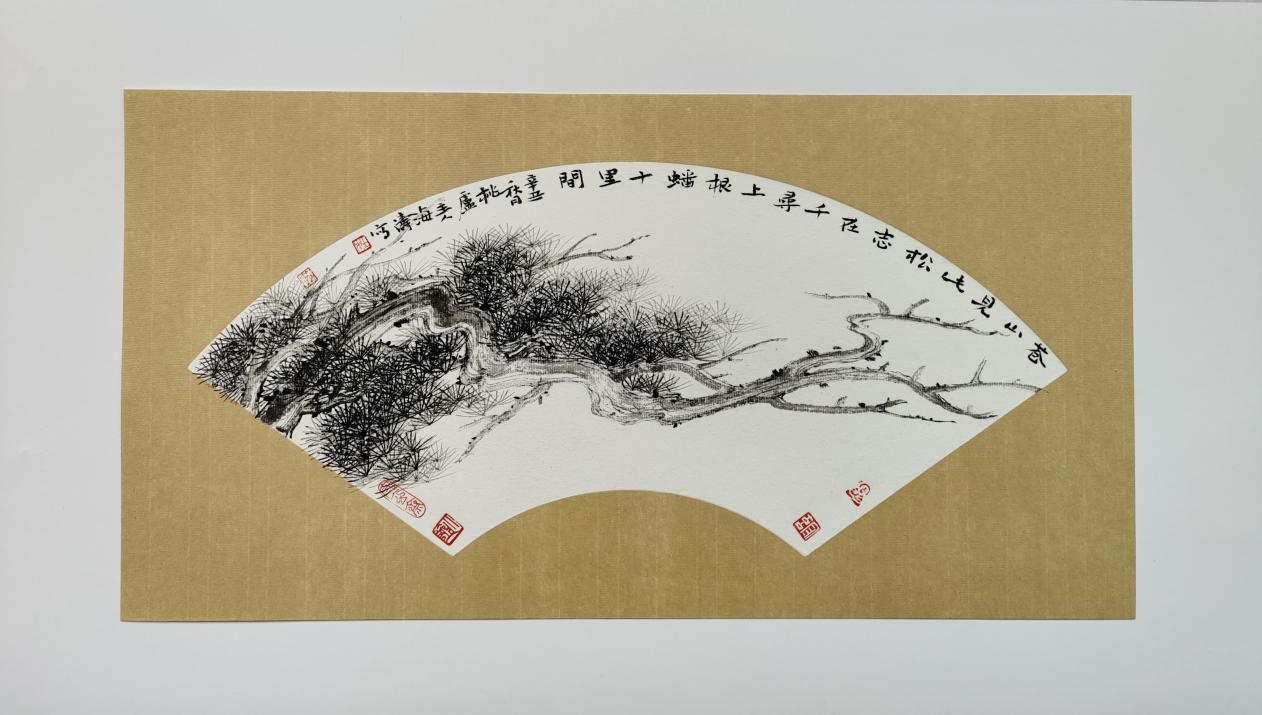 山見此松志在千尋上根蟠十里間
辛丑
桃廬吴海濤写